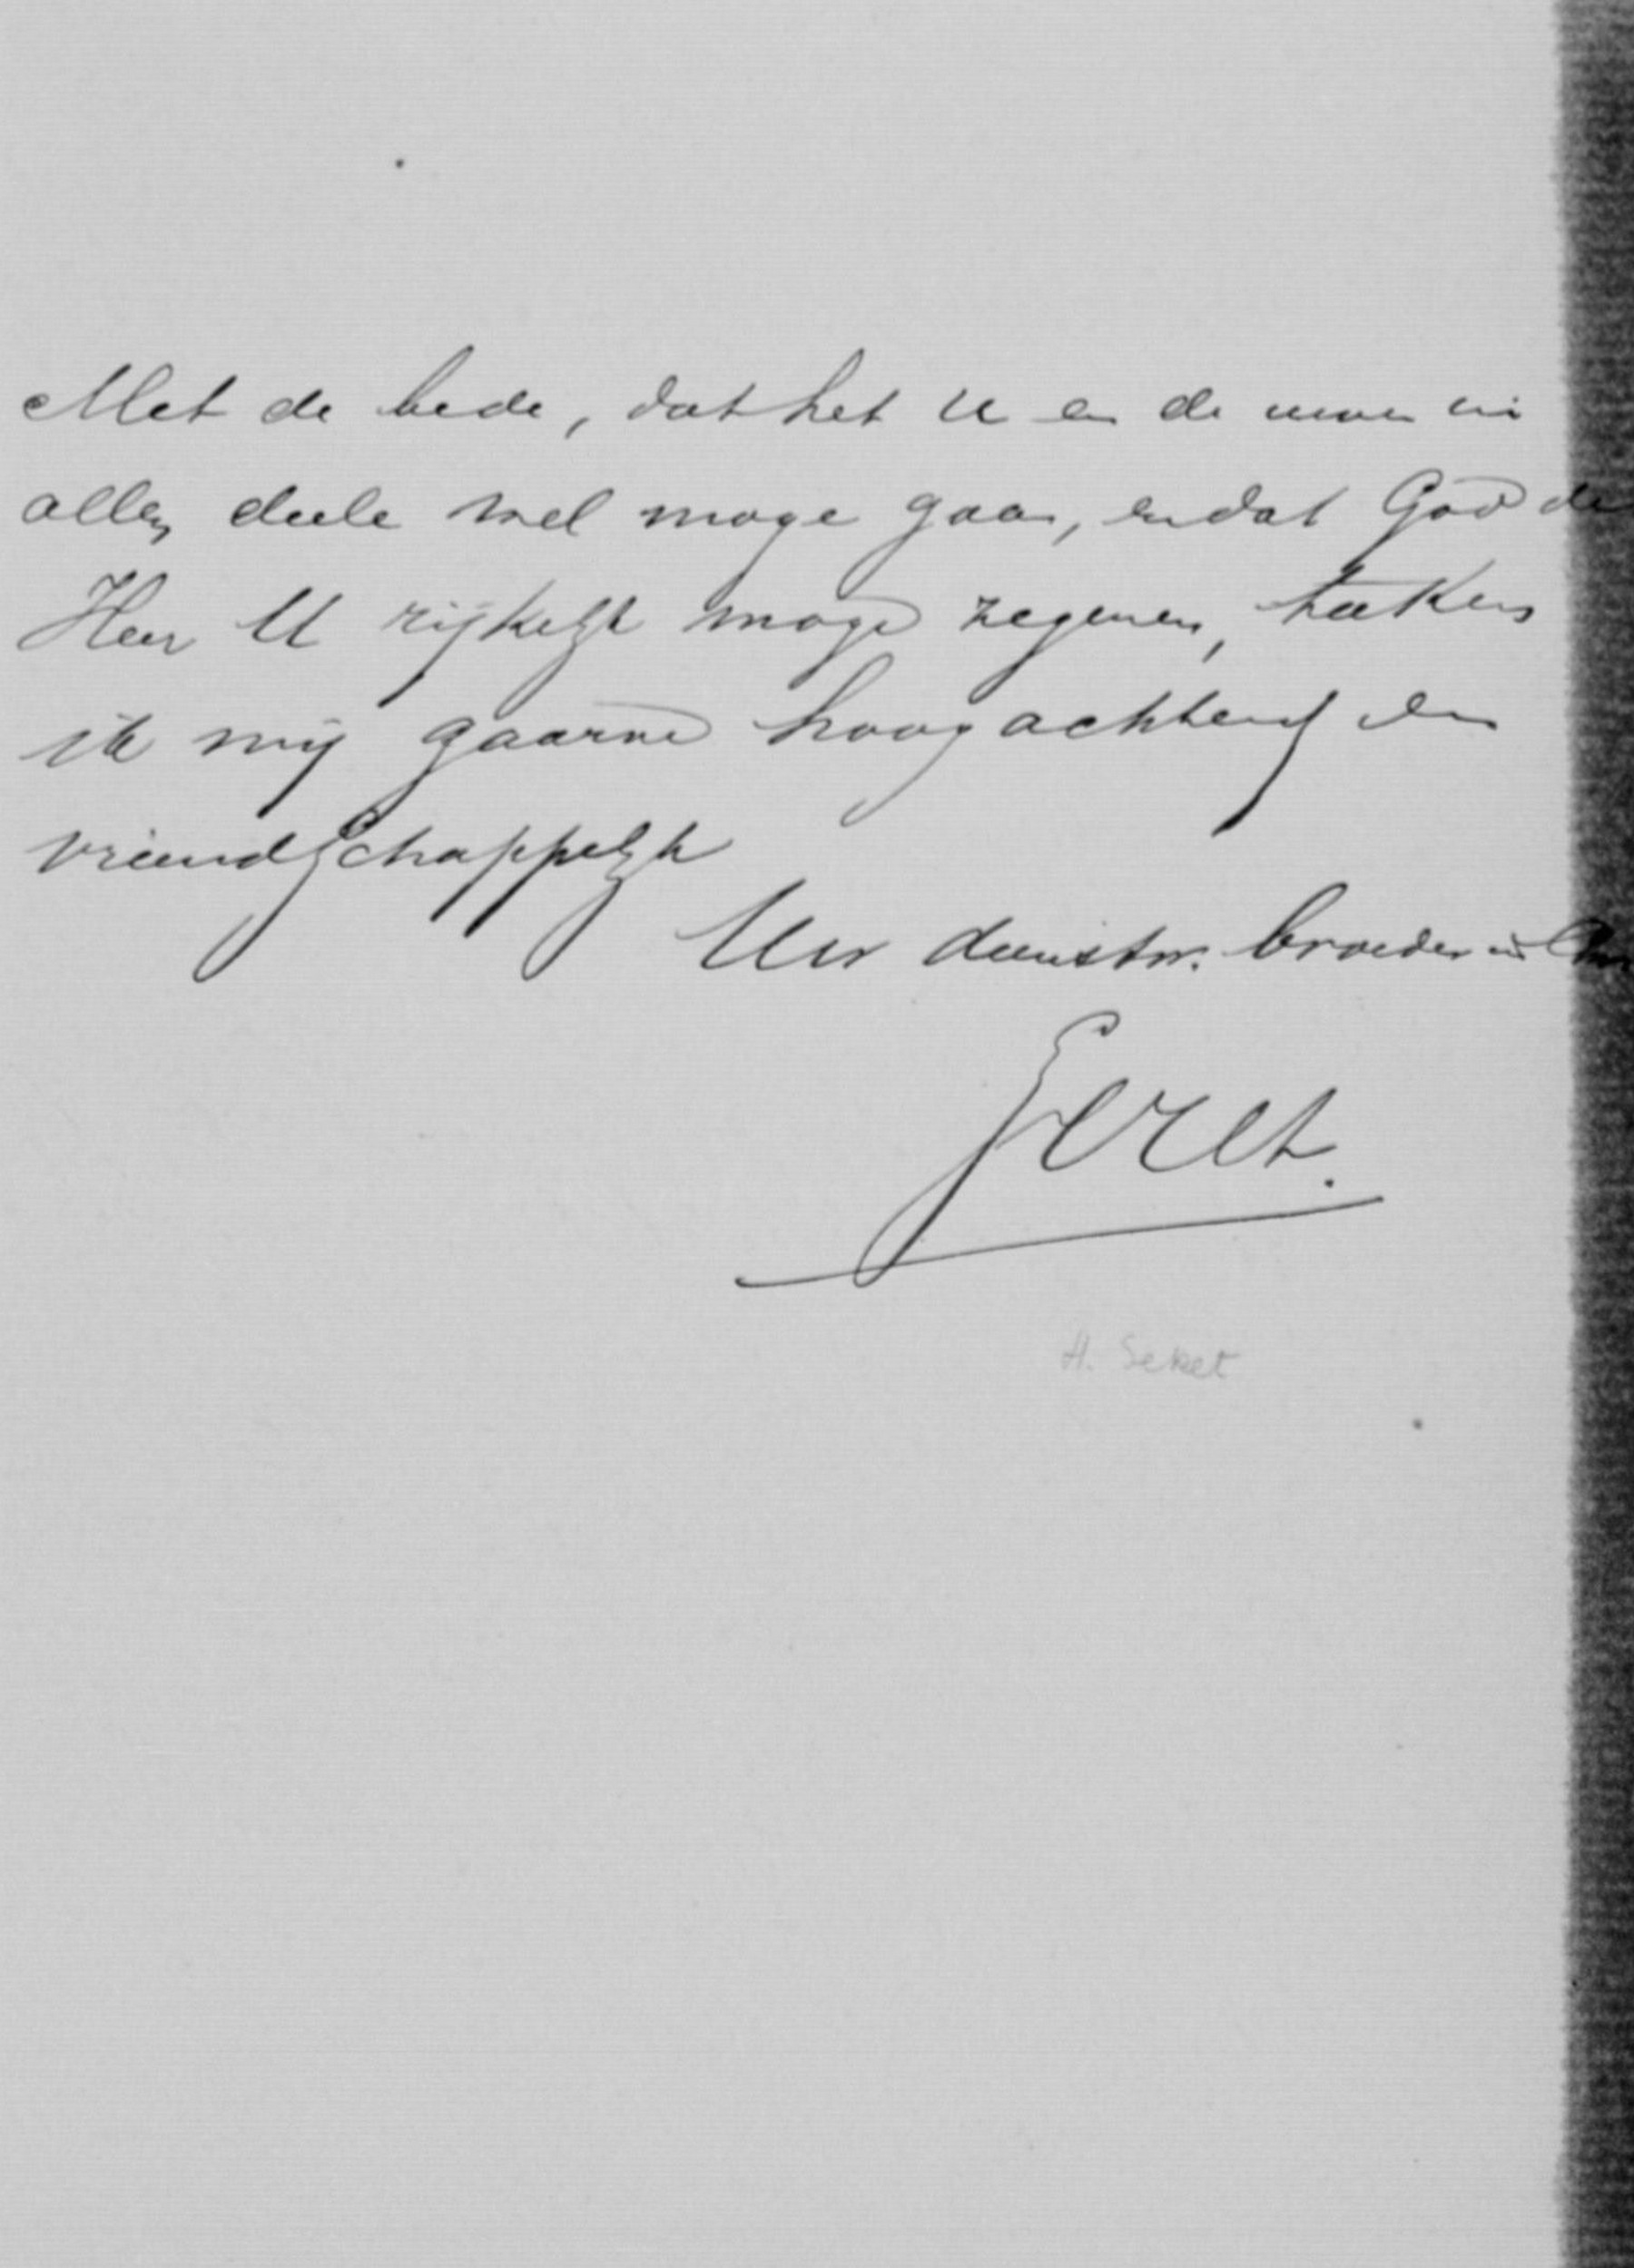 Met de bede, dat het U en de uwen in
allen deele wel moge gaan, en dat God de
Heer U rijkelijk moge zegenen, teeken
ik mij gaarne hoogachtend en
vriendschappelijk
Uw dienstw. broeder in
Seret.
H. Seret